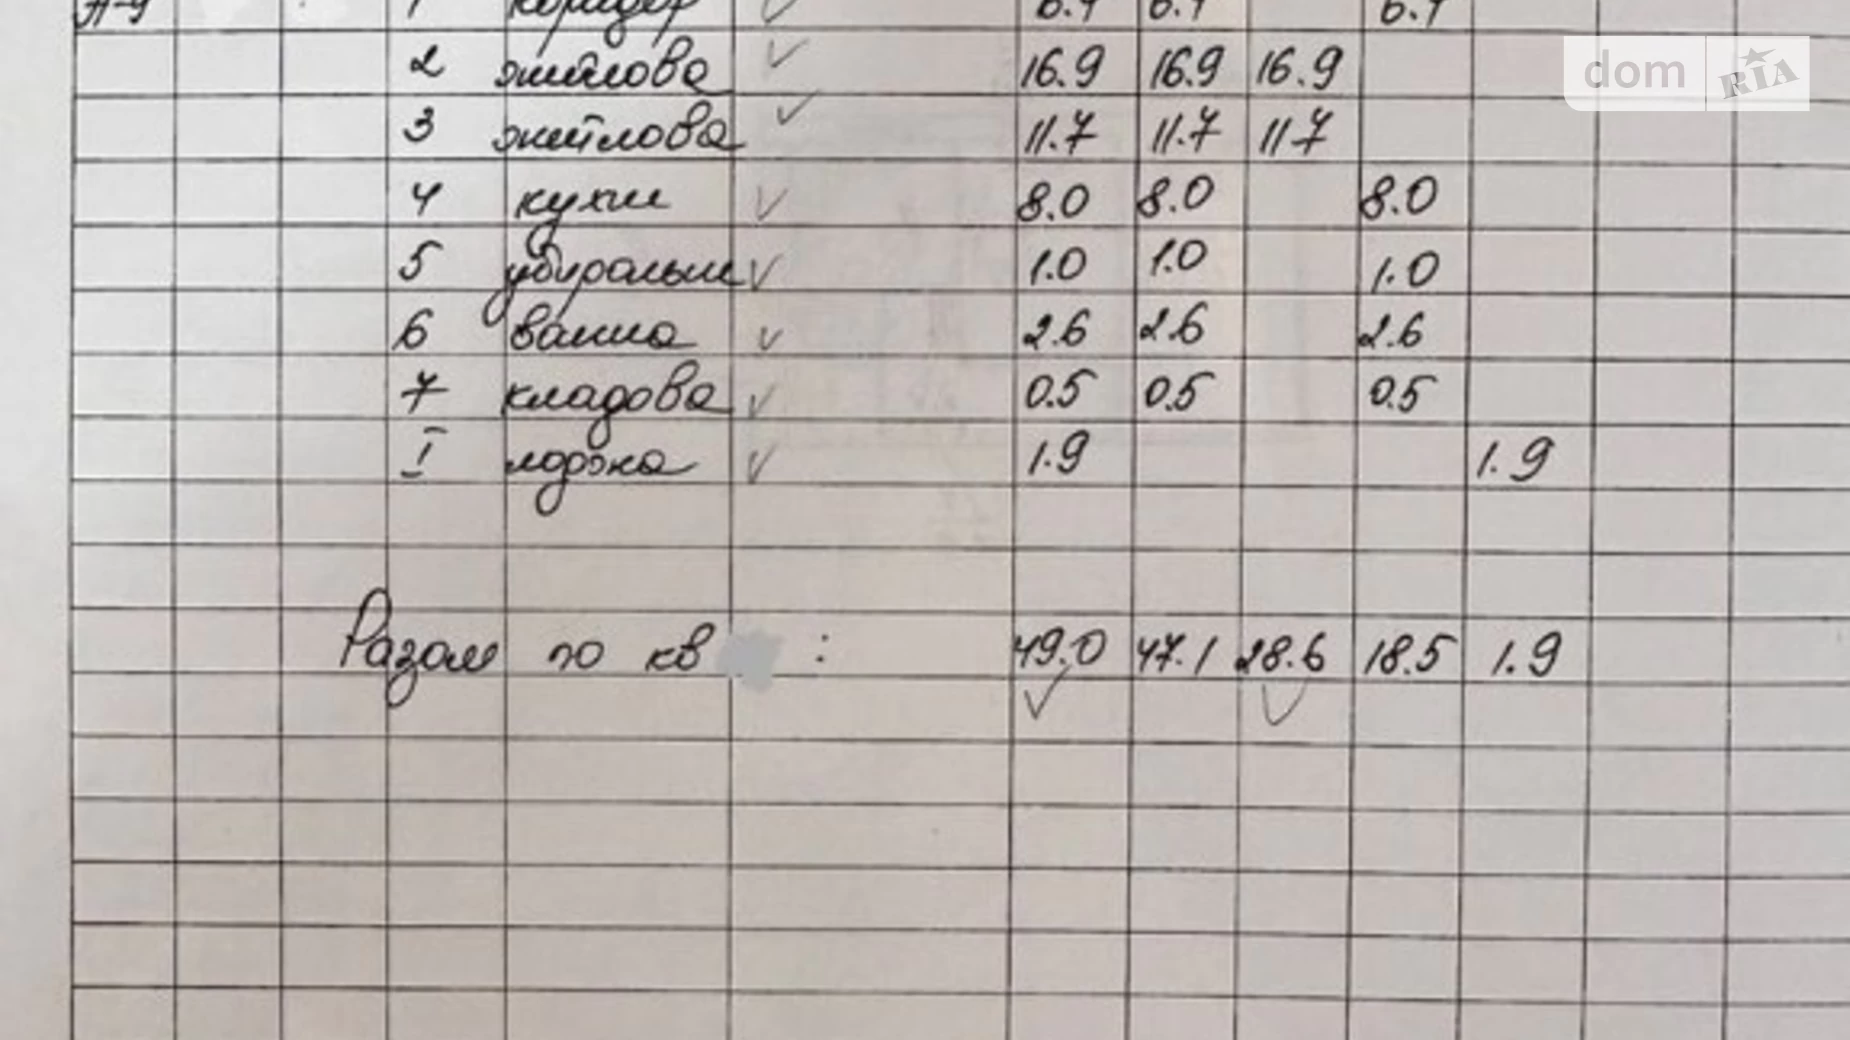 1 коридор 6.4 6.4 6.4
2 житлова 16.9 16.9 16.9
dom RIA
3 житлова 11.7 11.7 11.7
4 кухня 8.0 8.0 8.0
5 убиральня 1.0 1.0 1.0
6 ванна 2.6 2.6 2.6
7 кладова 0.5 0.5 0.5
I лоджа 1.9 1.9
Разом по кв : 49.0 47.1 28.6 18.5 1.9